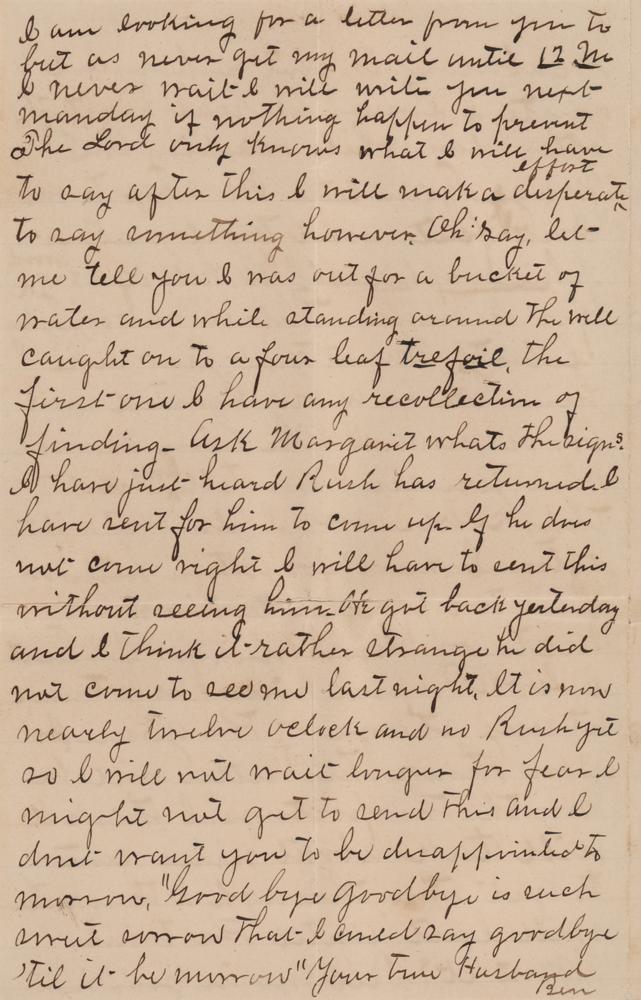 I am looking for a letter from you to
but as never get my mail until 12 M
I never wait I will write you next
manday if nothing happen to prevent
The Lord only knows what I will have
to say after this I will make a desperate effort
to say something however. Oh! say, let
me tell you I was out for a bucket of
water and while standing around the well
caught on to a four leaf trefoil, the
first one I have any recollection of
finding - Ask Margarit whats the signs.
I have just heard Rush has returned. I
have sent for him to come up. If he does
not come right I will have to sent this
without seeing him. He got back yesterday
and I think it rather strange he did
not come to see me last night. It is now
nearly twelve oclock and no Rush yet
so I will not wait longer for fear I
might not get to send this and I
dont want you to be disappointed to
morrow, "Good bye Goodbye is such
sweet sorrow that I could say goodbye
'til it be morrow" Your true Husband
Ben